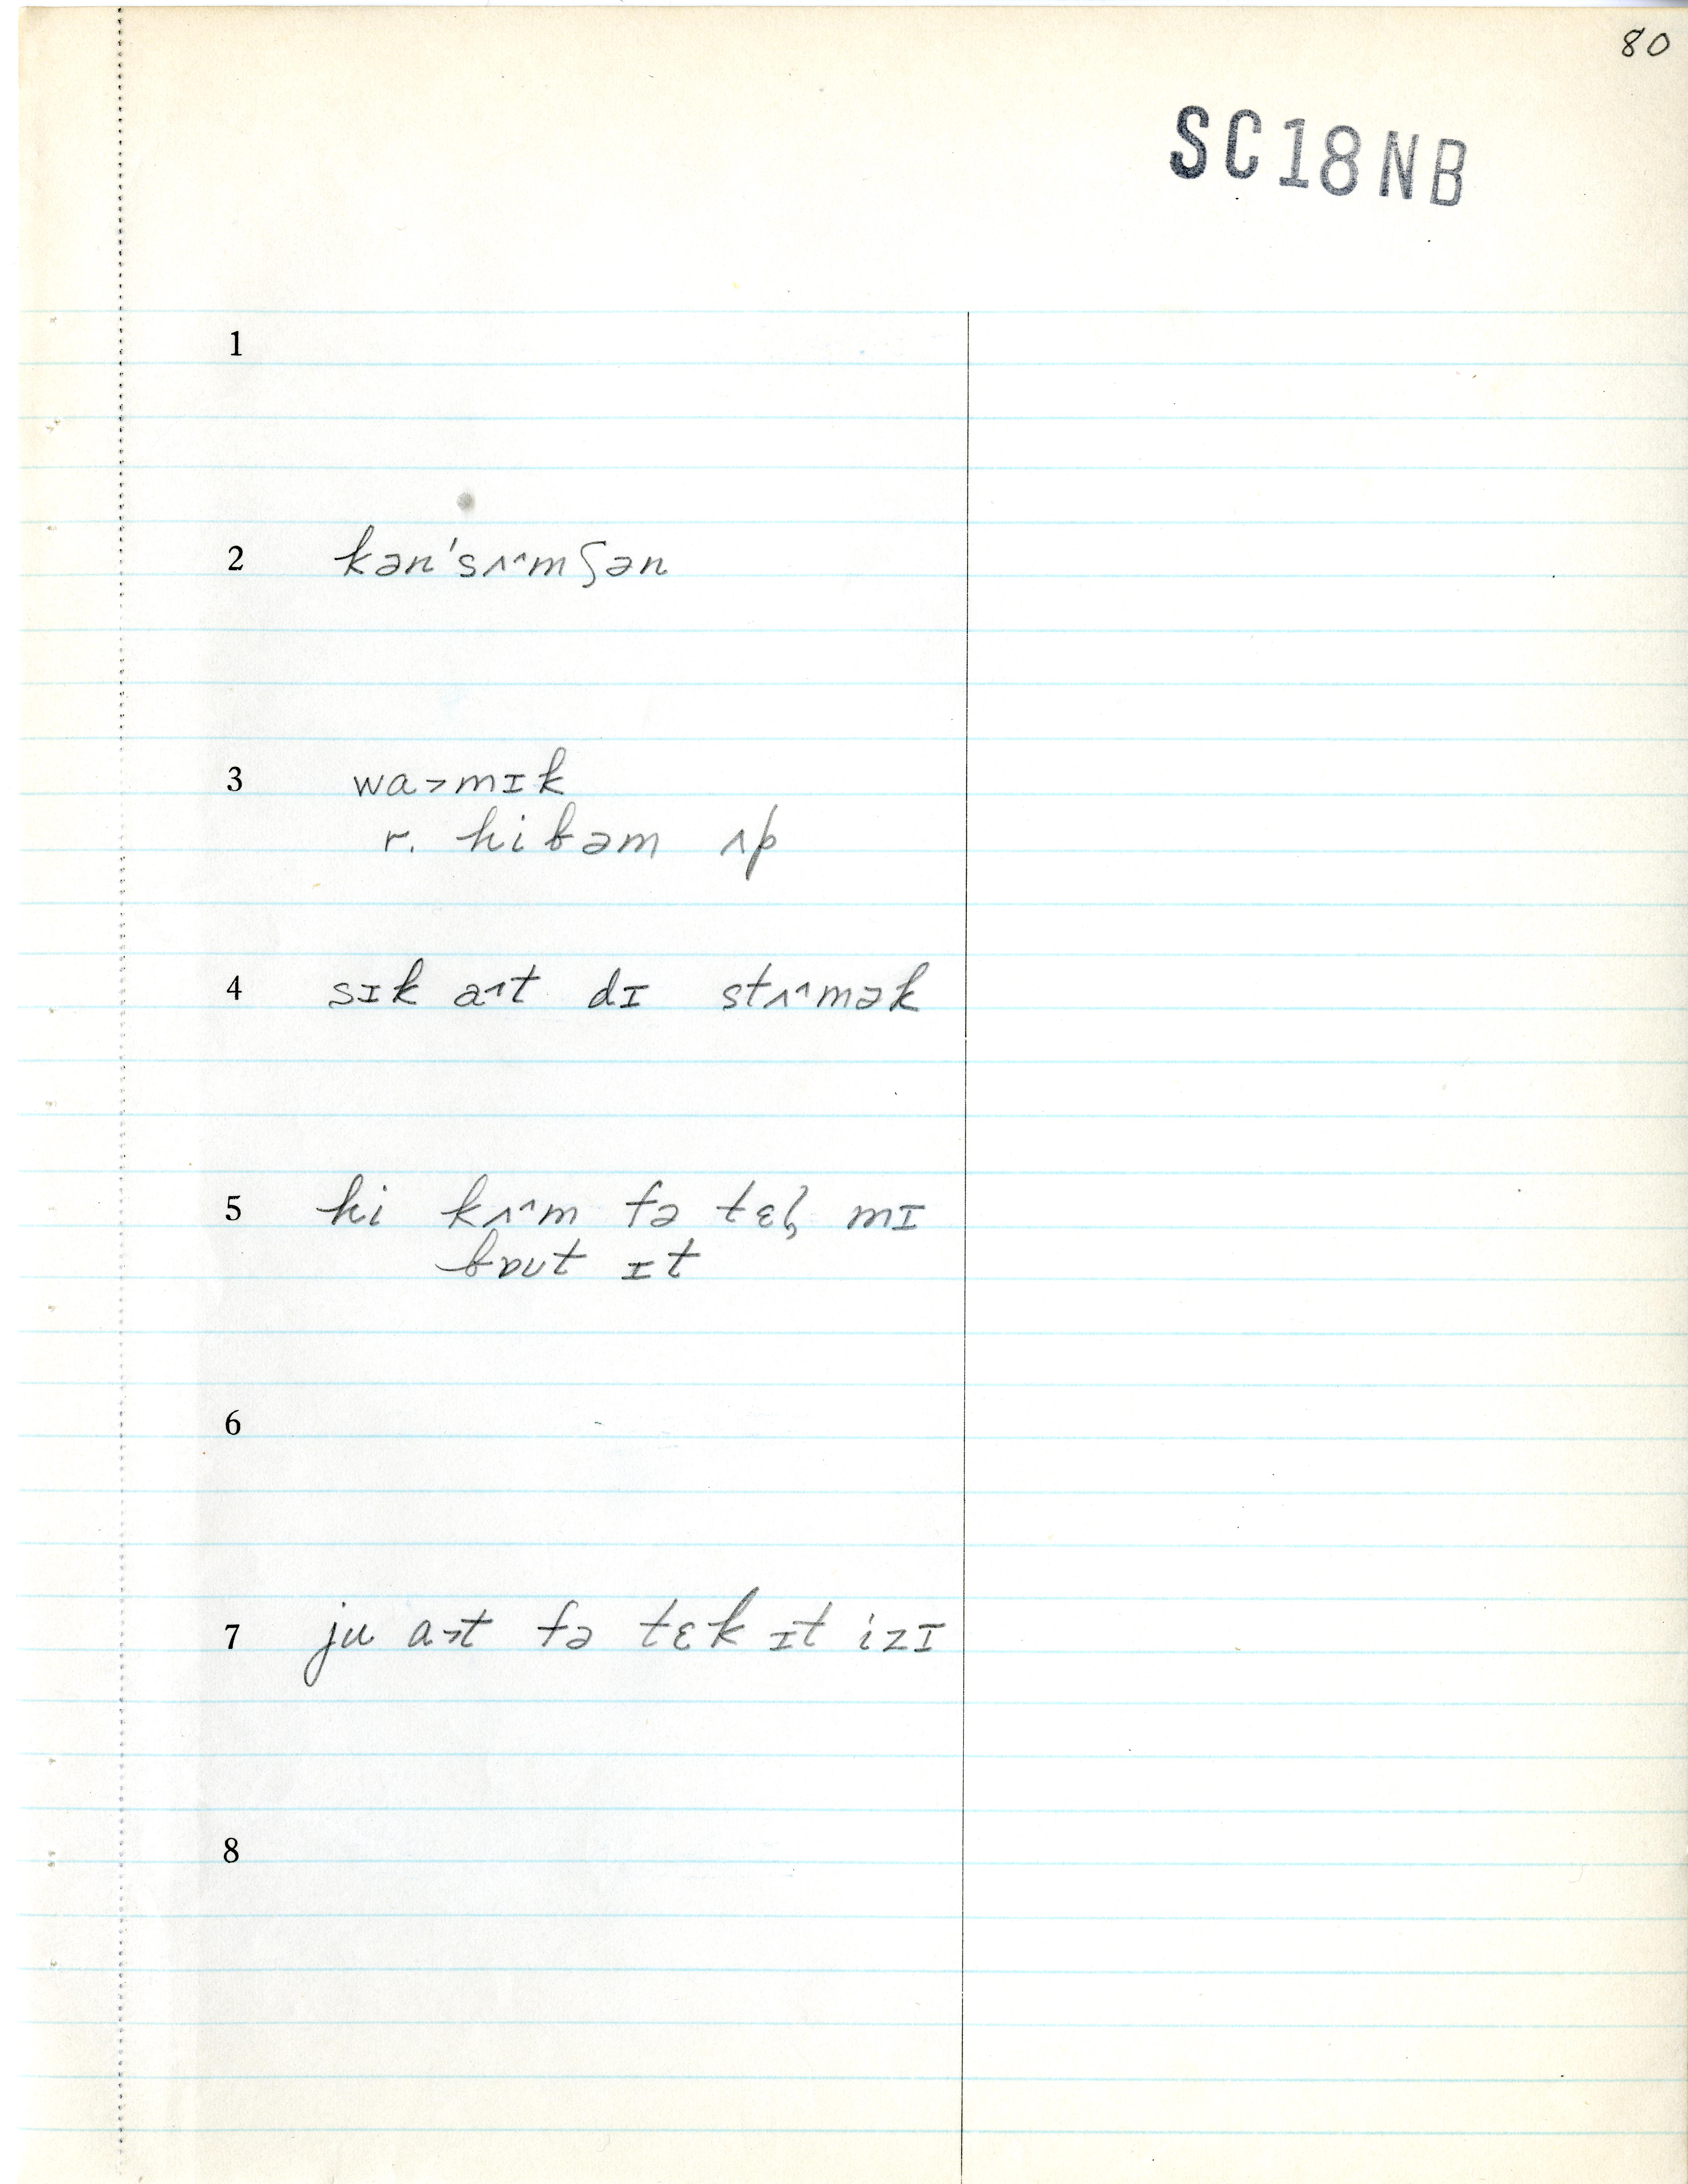 80
SC18NB
1
2 kən'sʌ˄mʃən
3 wa˃mɪk
r. hibəm ʌp
4 sɪk a˄t dɪ stʌ˄mək
5 hi kʌ˄m fə tɛɫ mɪ
bɒut ɪt
6
7 ju a˃t fə tɛk ɪt izɪ
8